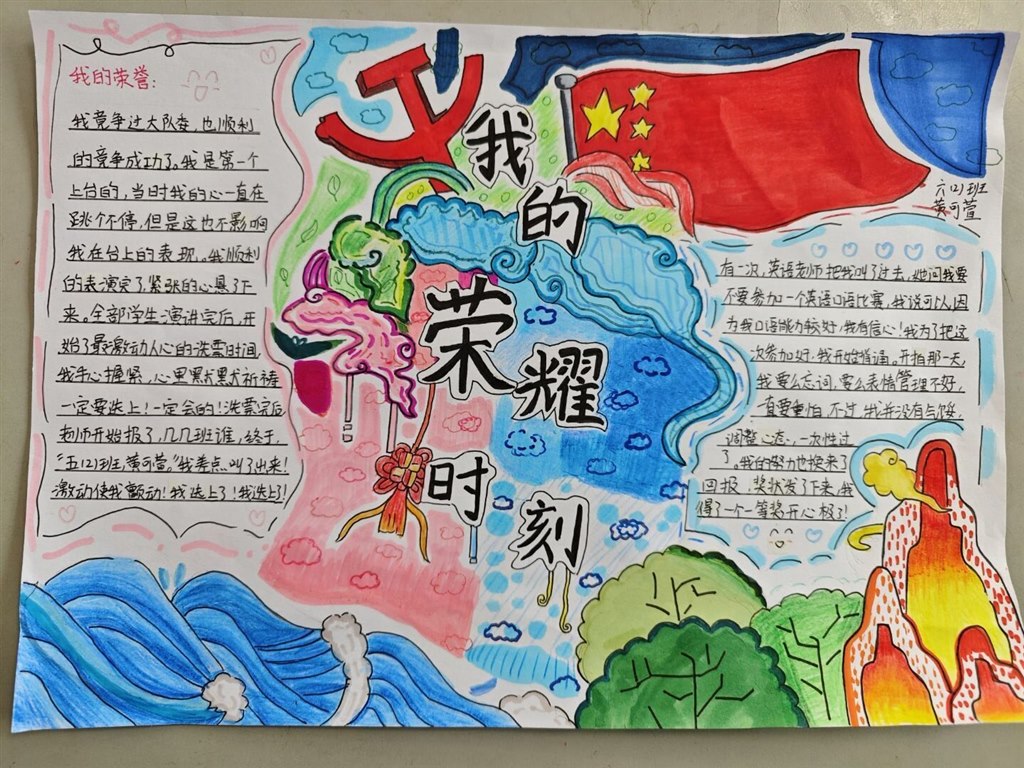 我的荣誉:
我竞争过大队委,也顺利
的竞争成功了。我是第一个
上台的,当时我的心一直在
跳个不停,但是这也不影响
我在台上的表现。我顺利
的表演完了,紧张的心悬了下
来。全部学生演讲完后,开
始了最激动人心的洗票时间,
我手心握紧,心里默默祈祷
一定要选上!一定会的!洗票完后
老师开始报了,几几班谁,终于,
“五(2)班,黄可萱,”我差点叫了出来!
激动使我颤动!我选上了!我选上了!
我的荣耀时刻
六(2)班
黄可萱
有一次,英语老师把我叫了过去,她问我要
不要参加一个英语口语比赛,我说可以,因
为我口语能力较好,我有信心!我为了把这
次参加好,我开始背诵。开拍那一天,
我要么忘词,要么表情管理不好,
一直要重拍,不过,我并没有气馁,
调整心态,一次性过
了。我的努力也换来了
回报,奖状发了下来,我
得了一个一等奖开心极了!